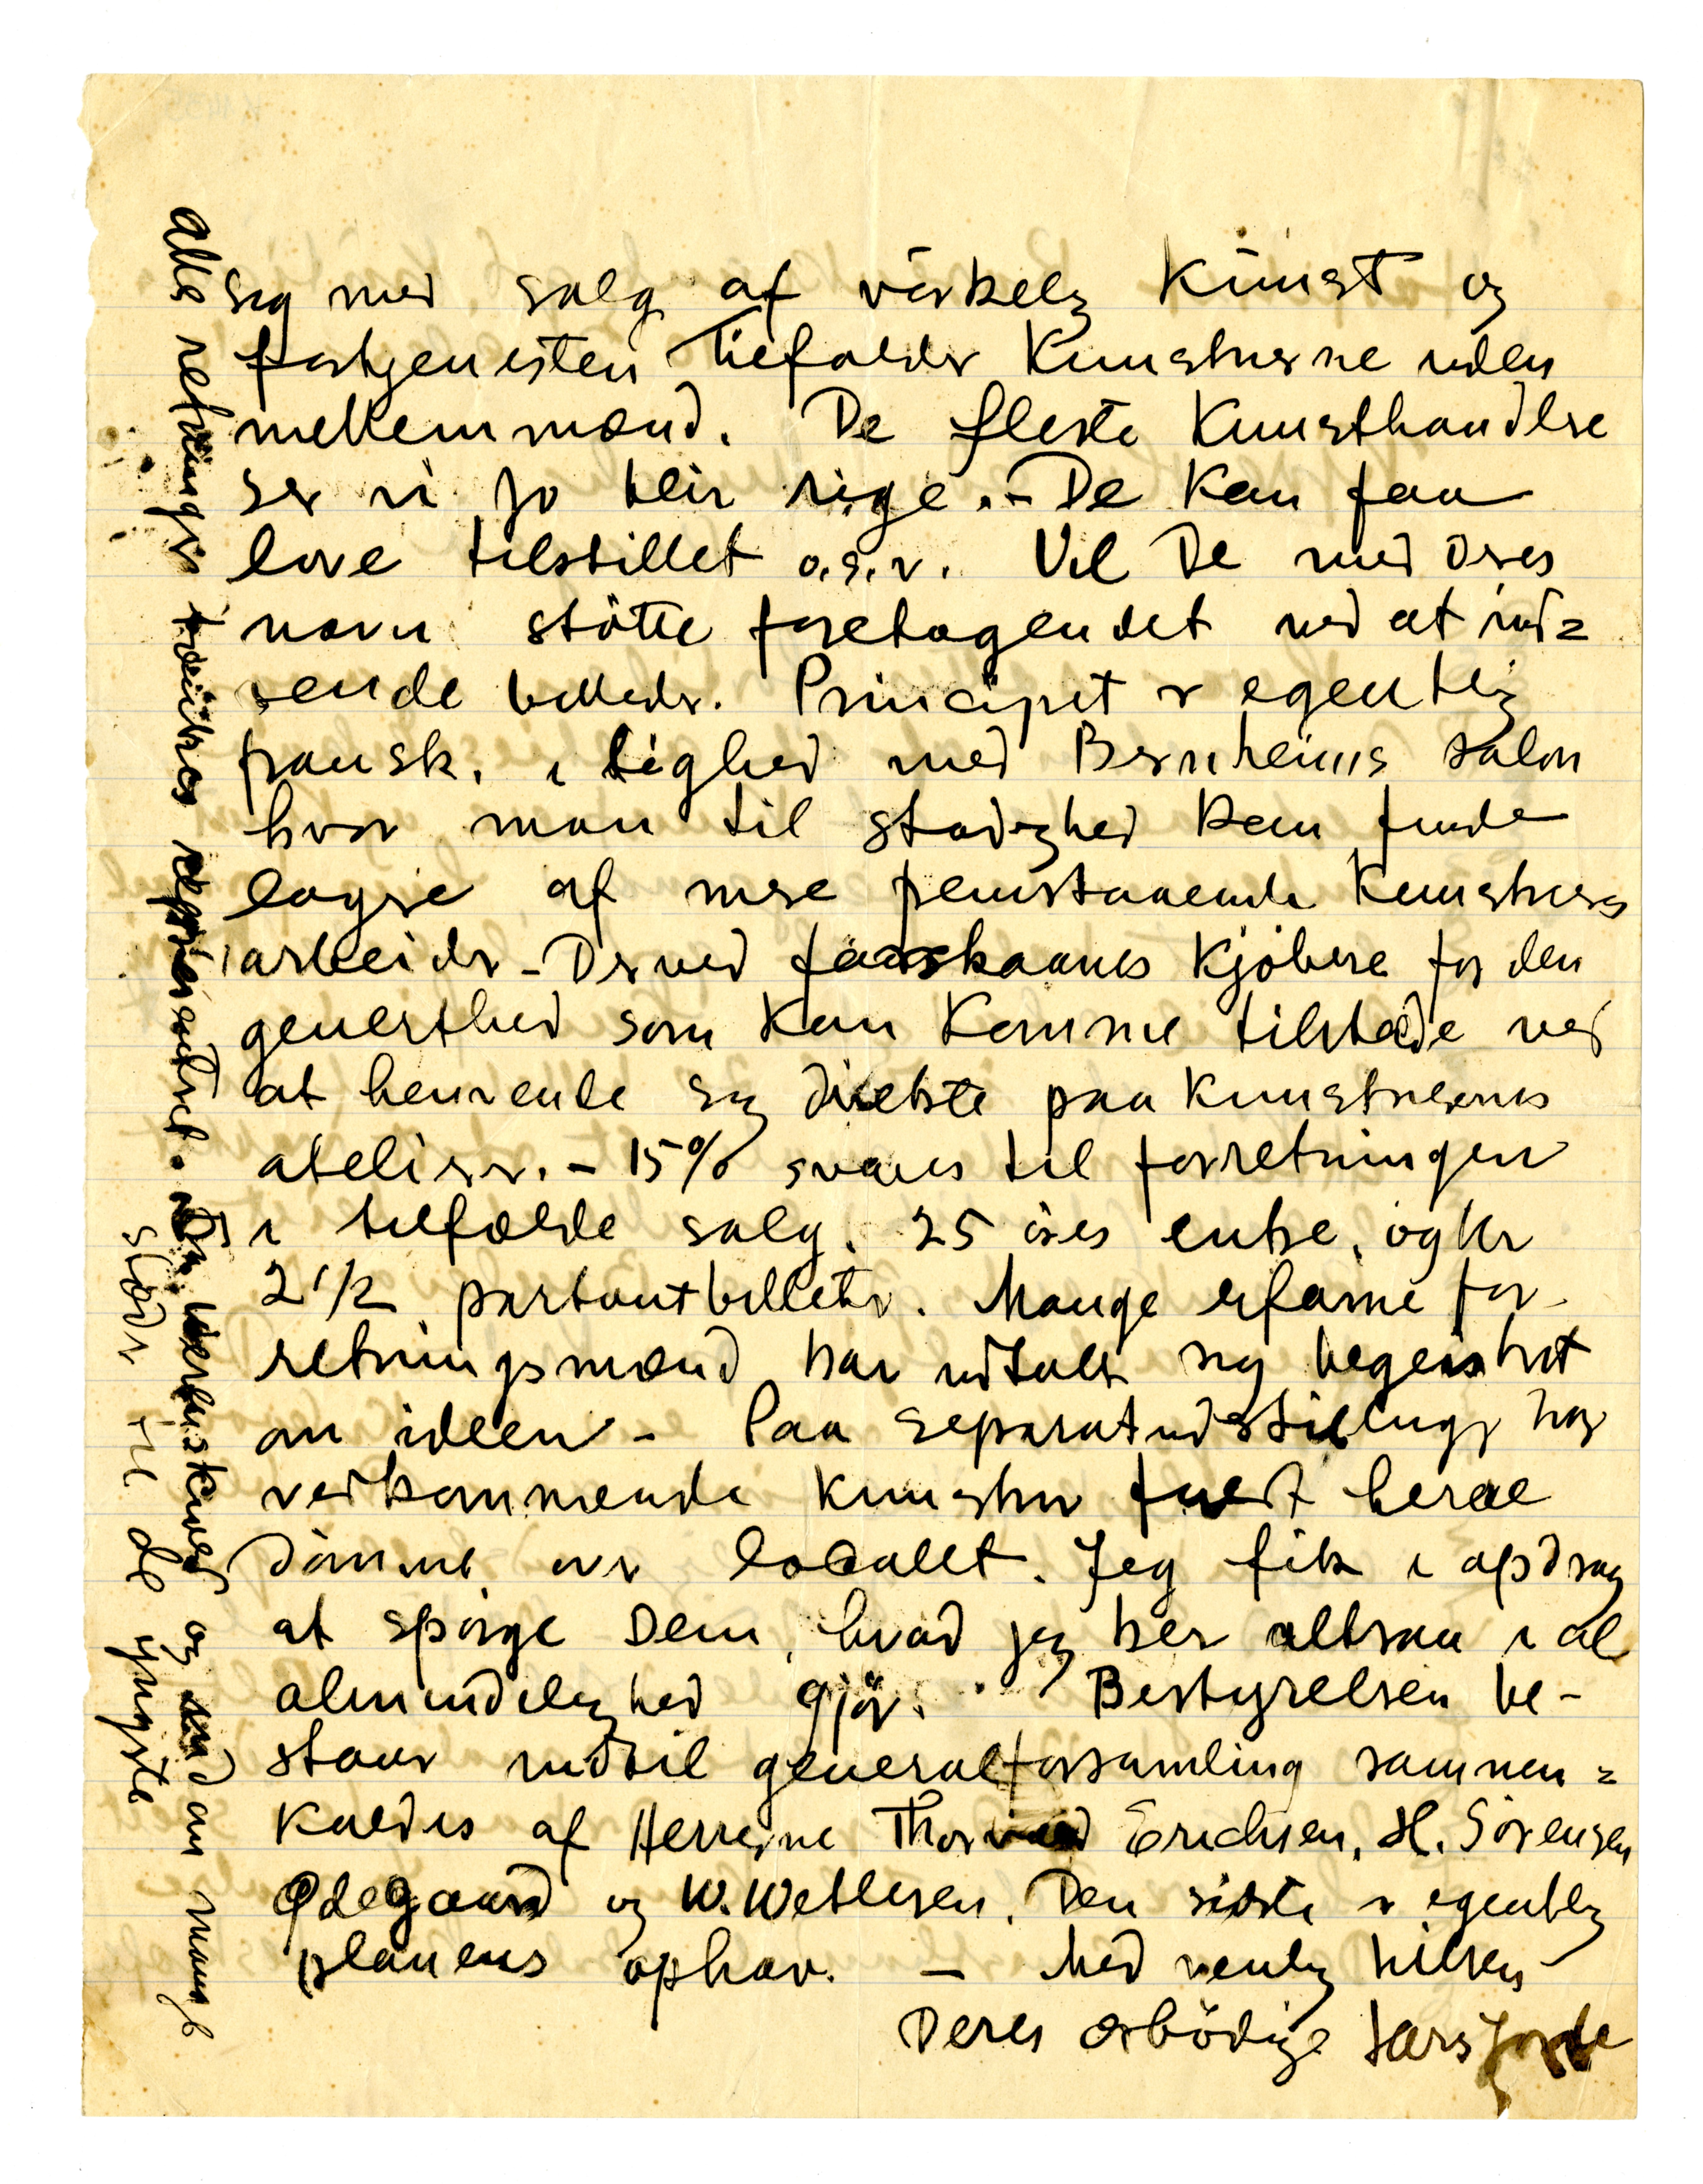 sig med salg af virkelig Kunst og
fortjenesten tilfalder Kunstnerne uden
mellemmænd. De fleste Kunsthandlere
ser vi jo blir rige. – De kan faa
love tilstillet o.s.v. Vil De med Deres
navn støtte foretagendet ved at ind=
sende billeder. Principet er egentlig
fransk, i lighed med Bernheims salon
hvor man til stadighed kan finde
lagre af mere fremstaaende Kunstneres
arbeider – Derved forskaanes Kjøbere for den
generthed som kan komme tilstede ved
at henvende sig direkte paa Kunstnernes
atelier. – 15% svares til forretningen
i tilfælde salg. 25 øres entre, og Kr
2 1/2 partoutbilletter. Mange erfarne for-
retningsmænd har udtalt sig begeistret
om ideen – Paa separatudstillinger har
vedkommende kunstner friest herre
dømme over localet. Jeg fik i opdrag
at spørge Dem, hvad jeg her altsaa i al
almindelighed gjør. Bestyrelsen be-
staar indtil generalforsamling sammen=
kaldes af Herrerne Thorvald Erichsen, H. Sørensen
Ødegaard og W. Wetlesen. Den sidste er egentlig
planens ophav. – Med venlig hilsen
Deres ærbødige Lars Jorde
alle retninger tænkes repræsenteret. Dr. Werenskiold og endnu mange
slader til de yngste